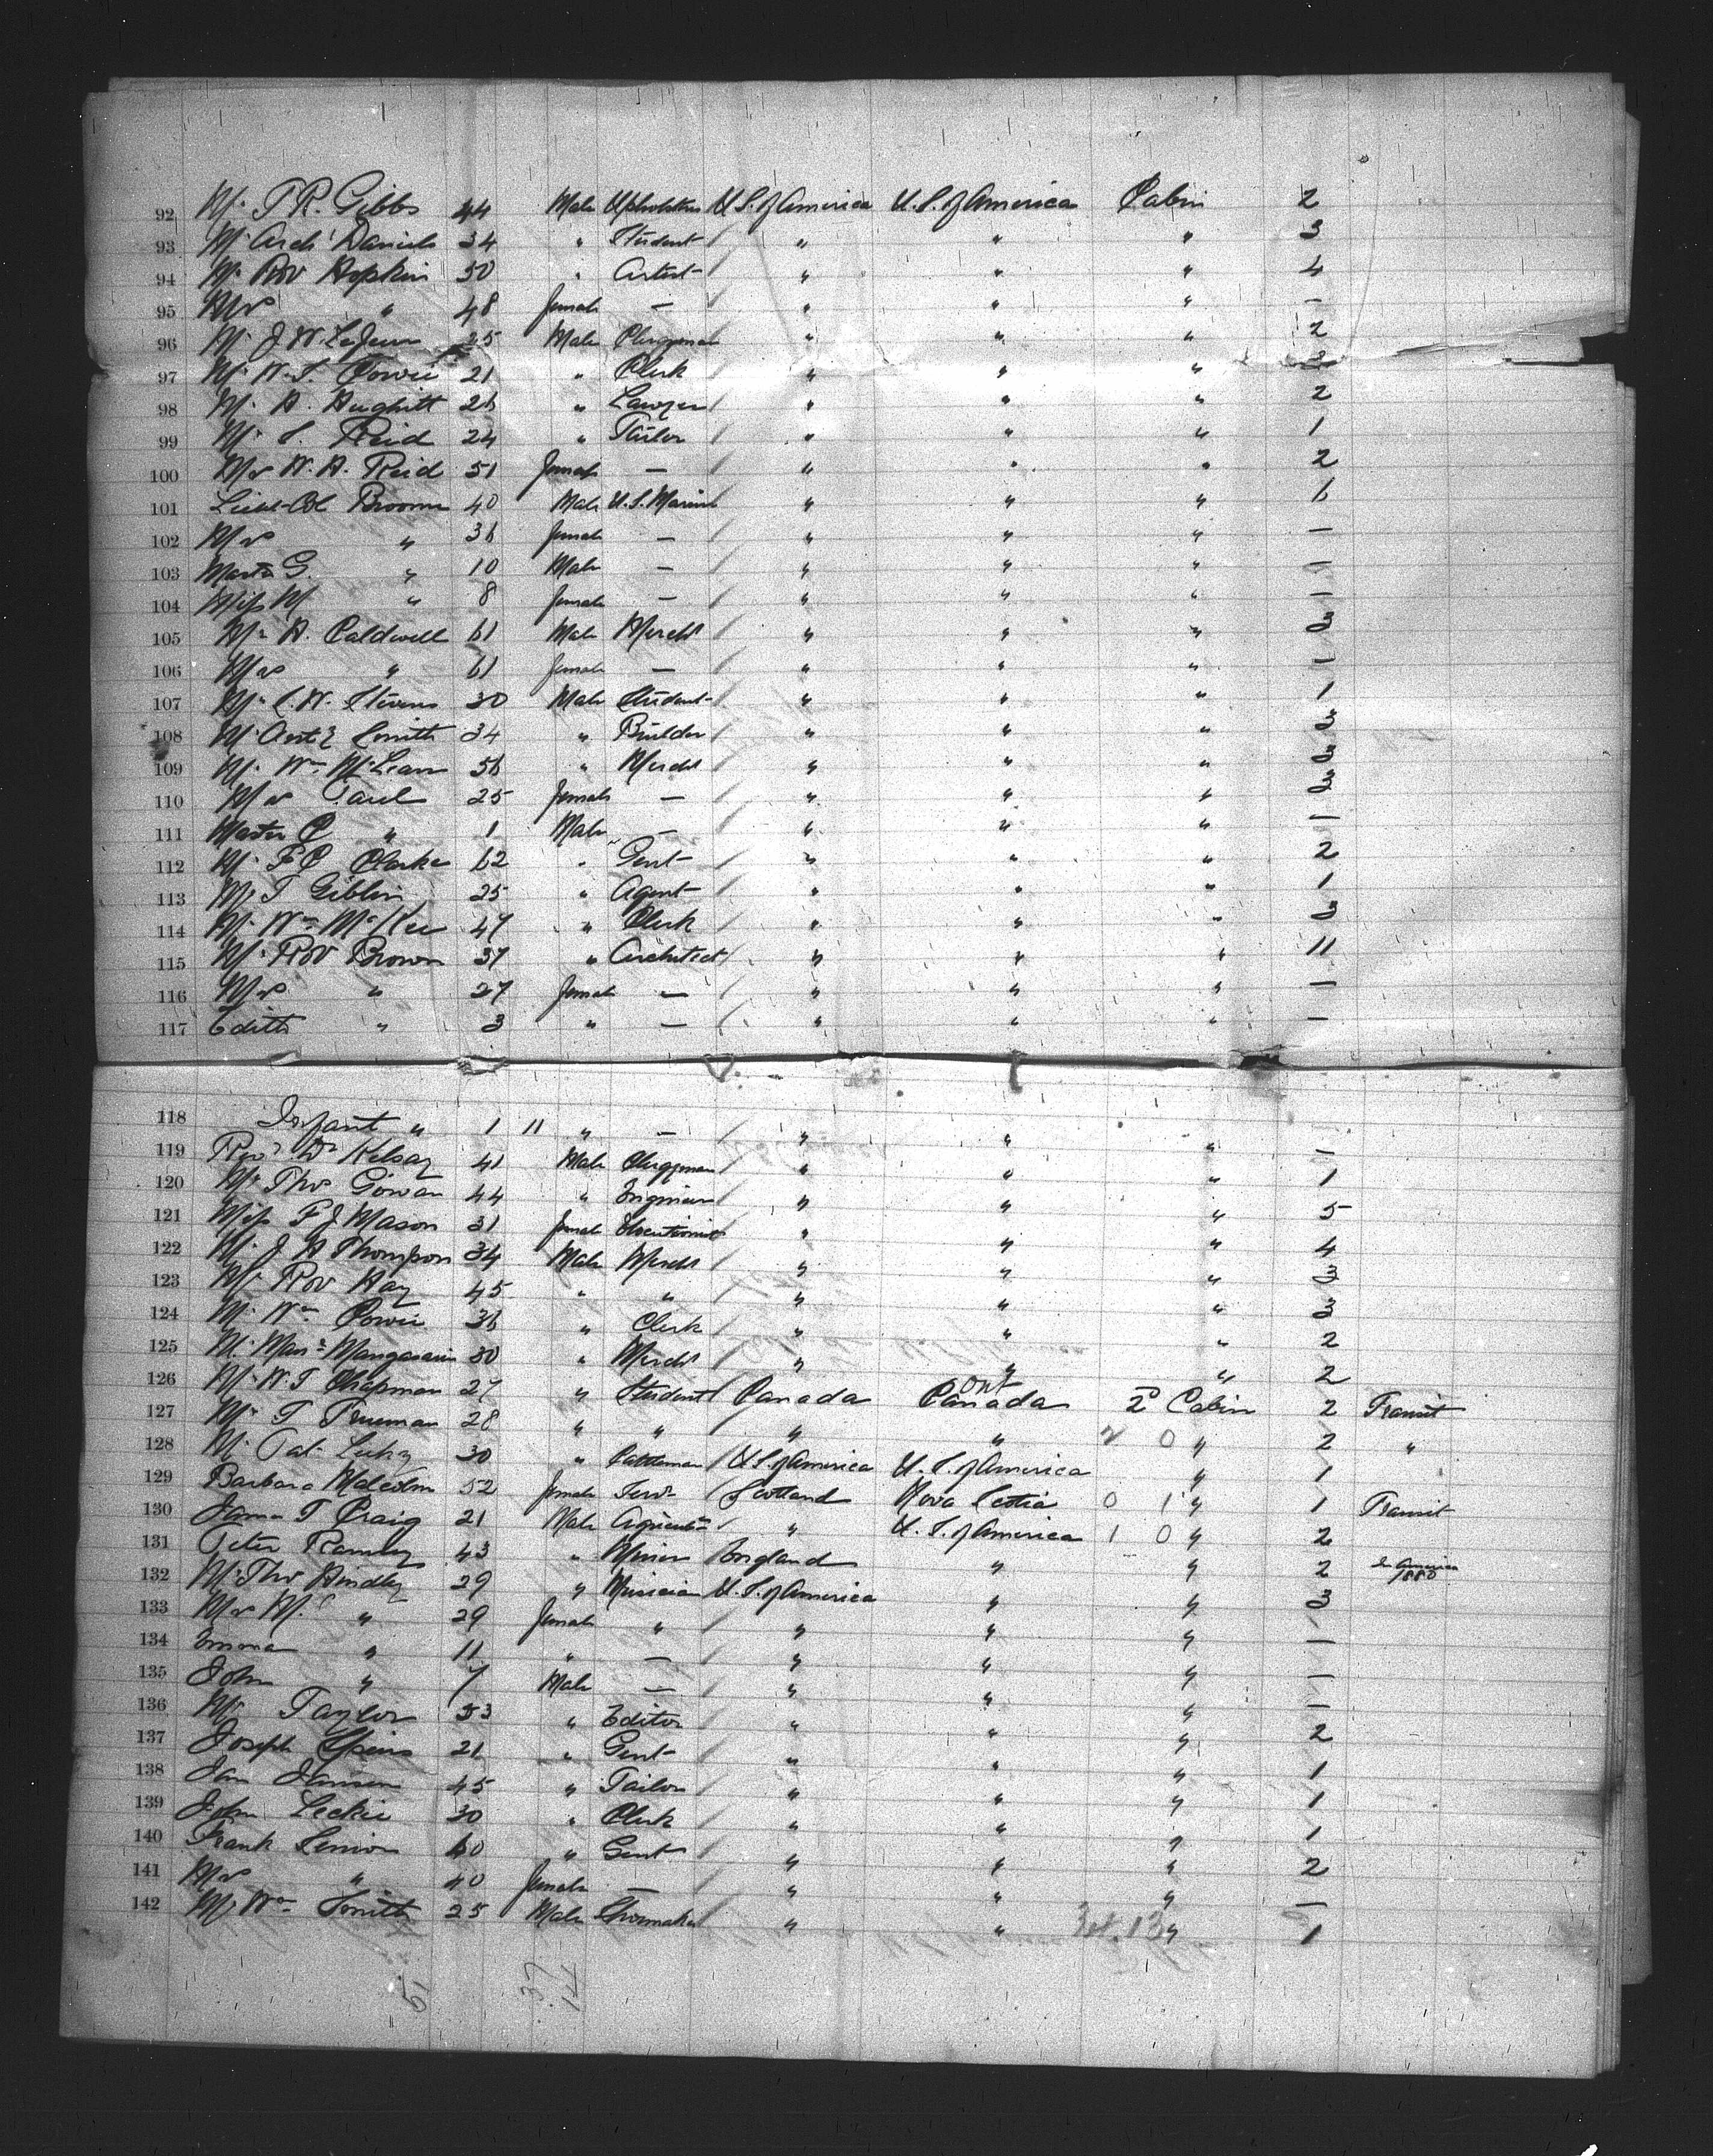 92 Mr T R. Gibbs 44 Male Upholsterer U.S. of America U.S. of America Cabin 2
93 Mr Archd Daniels 34 " Student " " " 3
94 Mr Robt Hopkin 50 " Artist " " " 4
95 Mrs " 48 female — " " " —
96 Mr J. W. 25 Male Clergyman " " " 2
97 Mr W. S. Cowie 21 " Clerk " " "
98 Mr A. Aughitt 26 " Lawyer " " " 2
99 Mr S. Reid 24 " Tailor " " " 1
100 Mrs W. A. Reid 51 female — " " " 2
101 Lieut-Col Broome 40 Male U.S. Marine " " " 6
102 Mrs " 36 female — " " " —
103 Master G. " 10 Male — " " " —
104 Miss M " 8 female — " " " —
105 Mr A. Caldwell 61 Male Mercht " " " 3
106 Mrs " 61 female — " " " —
107 Mr C. W. Stevens 30 Male Student " " " 1
108 Mr Smith 34 " Builder " " " 3
109 Mr Wm McLean 56 " Mercht " " " 3
110 Mrs Paul 25 female — " " " 3
111 Master C " 1 Male — " " " —
112 Mr F C Clarke 62 " Gent " " " 2
113 Mr T Giblin 25 " Agent " " " 1
114 Mr Wm McKee 47 " Clerk " " " 3
115 Mr Robt Brown 37 " Architect " " " 11
116 Mrs " 27 female — " " " —
117 Edith " 3 " — " " " —
118 Infant " 1 11 " — " " " —
119 Revd Dr Kelsay 41 Male Clergyman " " " 1
120 Mr Thos Gowan 44 " Engineer " " " 5
121 Miss F J Mason 31 female Elocutionist " " " 4
122 Mr J A Thompson 34 Male Mercht " " " 3
123 Mr Robt Hay 45 " " " " " 3
124 Mr Wm Cowie 36 " Clerk " " " 2
125 Mr Mangasarian 30 " Mercht " " " 2
126 Mr W. T Chapman 27 " Student Canada Ont Canada 2d Cabin 2 Transit
127 Mr T Trueman 28 " " " " 2 0 " 2 "
128 Mr Pat. 30 " Cattleman U.S. of America U.S. of America " 1
129 Barbara Malcolm 52 female Servt Scotland Nova Scotia 0 1 " 1 Transit
130 James T Craig 21 Male " U.S. of America 1 0 " 2
131 Peter 43 " Miner England " " 2 In America 1880
132 Mr Thos Hindley 29 " Musician U.S. of America " " 3
133 Mrs M. " 29 female " " " " —
134 Emma " 11 " — " " " —
135 John " 7 Male — " " " —
136 Mr Taylor 53 " Editor " " " 2
137 Joseph Spiers 21 " Gent " " " 1
138 Jansen 45 " Tailor " " " 1
139 John Leckie 30 " Clerk " " " 1
140 Frank Lennon 60 " Gent " " " 2
141 Mrs " 40 female — " " " —
142 Mr Wm Smith 25 Male Shoemaker " " " 1
51 37 14